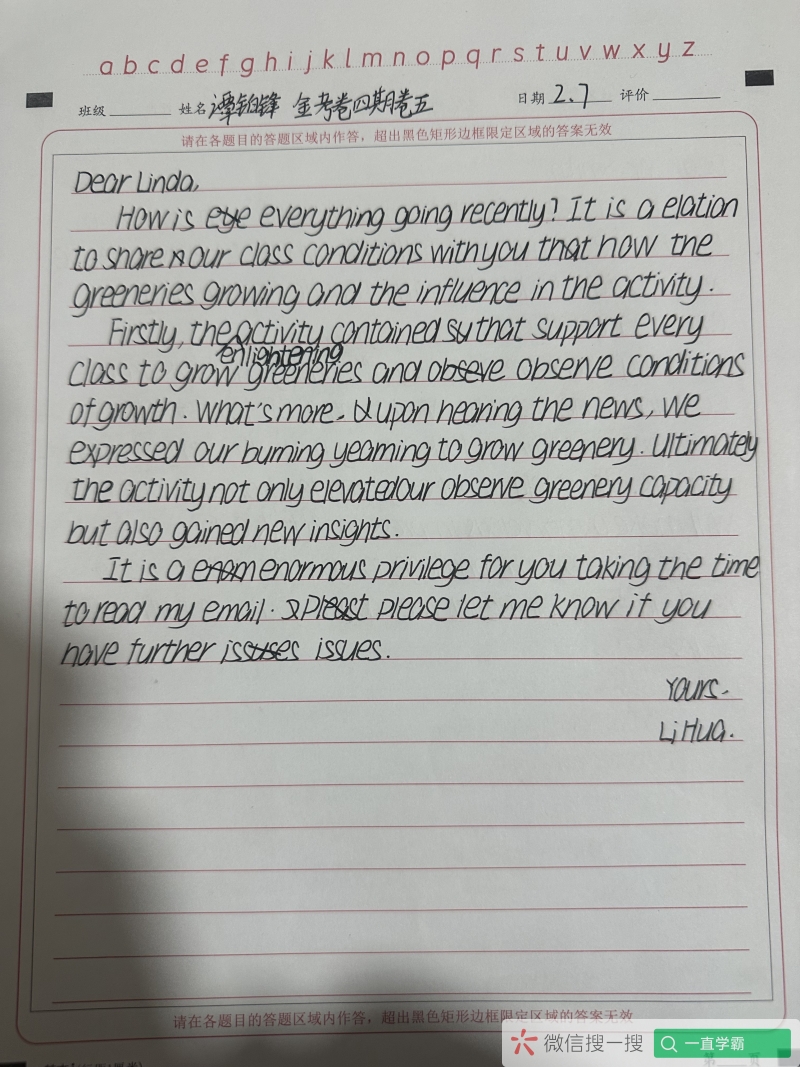 a b c d e f g h i j k l m n o p q r s t u v w x y z
班级 姓名 谭铂锋 金考卷四期卷五 日期 2.7 评价
请在各题目的答题区域内作答，超出黑色矩形边框限定区域的答案无效
Dear Linda,
How is everything going recently? It is a elation
to share our class conditions with you that how the
greeneries growing and the influence in the activity.
Firstly, the enlightering activity contained that support every
class to grow greeneries and observe conditions
of growth. What's more, upon hearing the news, we
expressed our burning yearning to grow greenery. Ultimately
the activity not only elevated our observe greenery capacity
but also gained new insights.
It is a enormous privilege for you taking the time
to read my email. please let me know if you
have further issues.
Yours.
Li Hua.
请在各题目的答题区域内作答，超出黑色矩形边框限定区域的答案无效
微信搜一搜 一直学霸
第 页